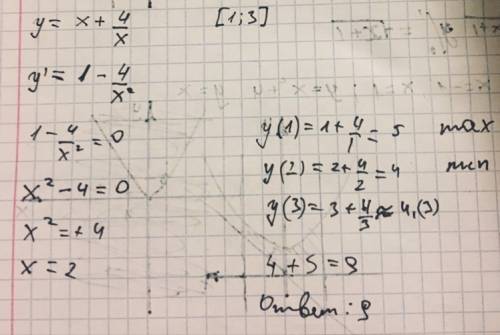 y = x + 4/x [1; 3]
y' = 1 - 4/x²
1 - 4/x² = 0
x² - 4 = 0
x² = + 4
x = 2
y(1) = 1 + 4/1 = 5 max
y(2) = 2 + 4/2 = 4 min
y(3) = 3 + 4/3 ≈ 4,(3)
4 + 5 = 9
Ответ: 9